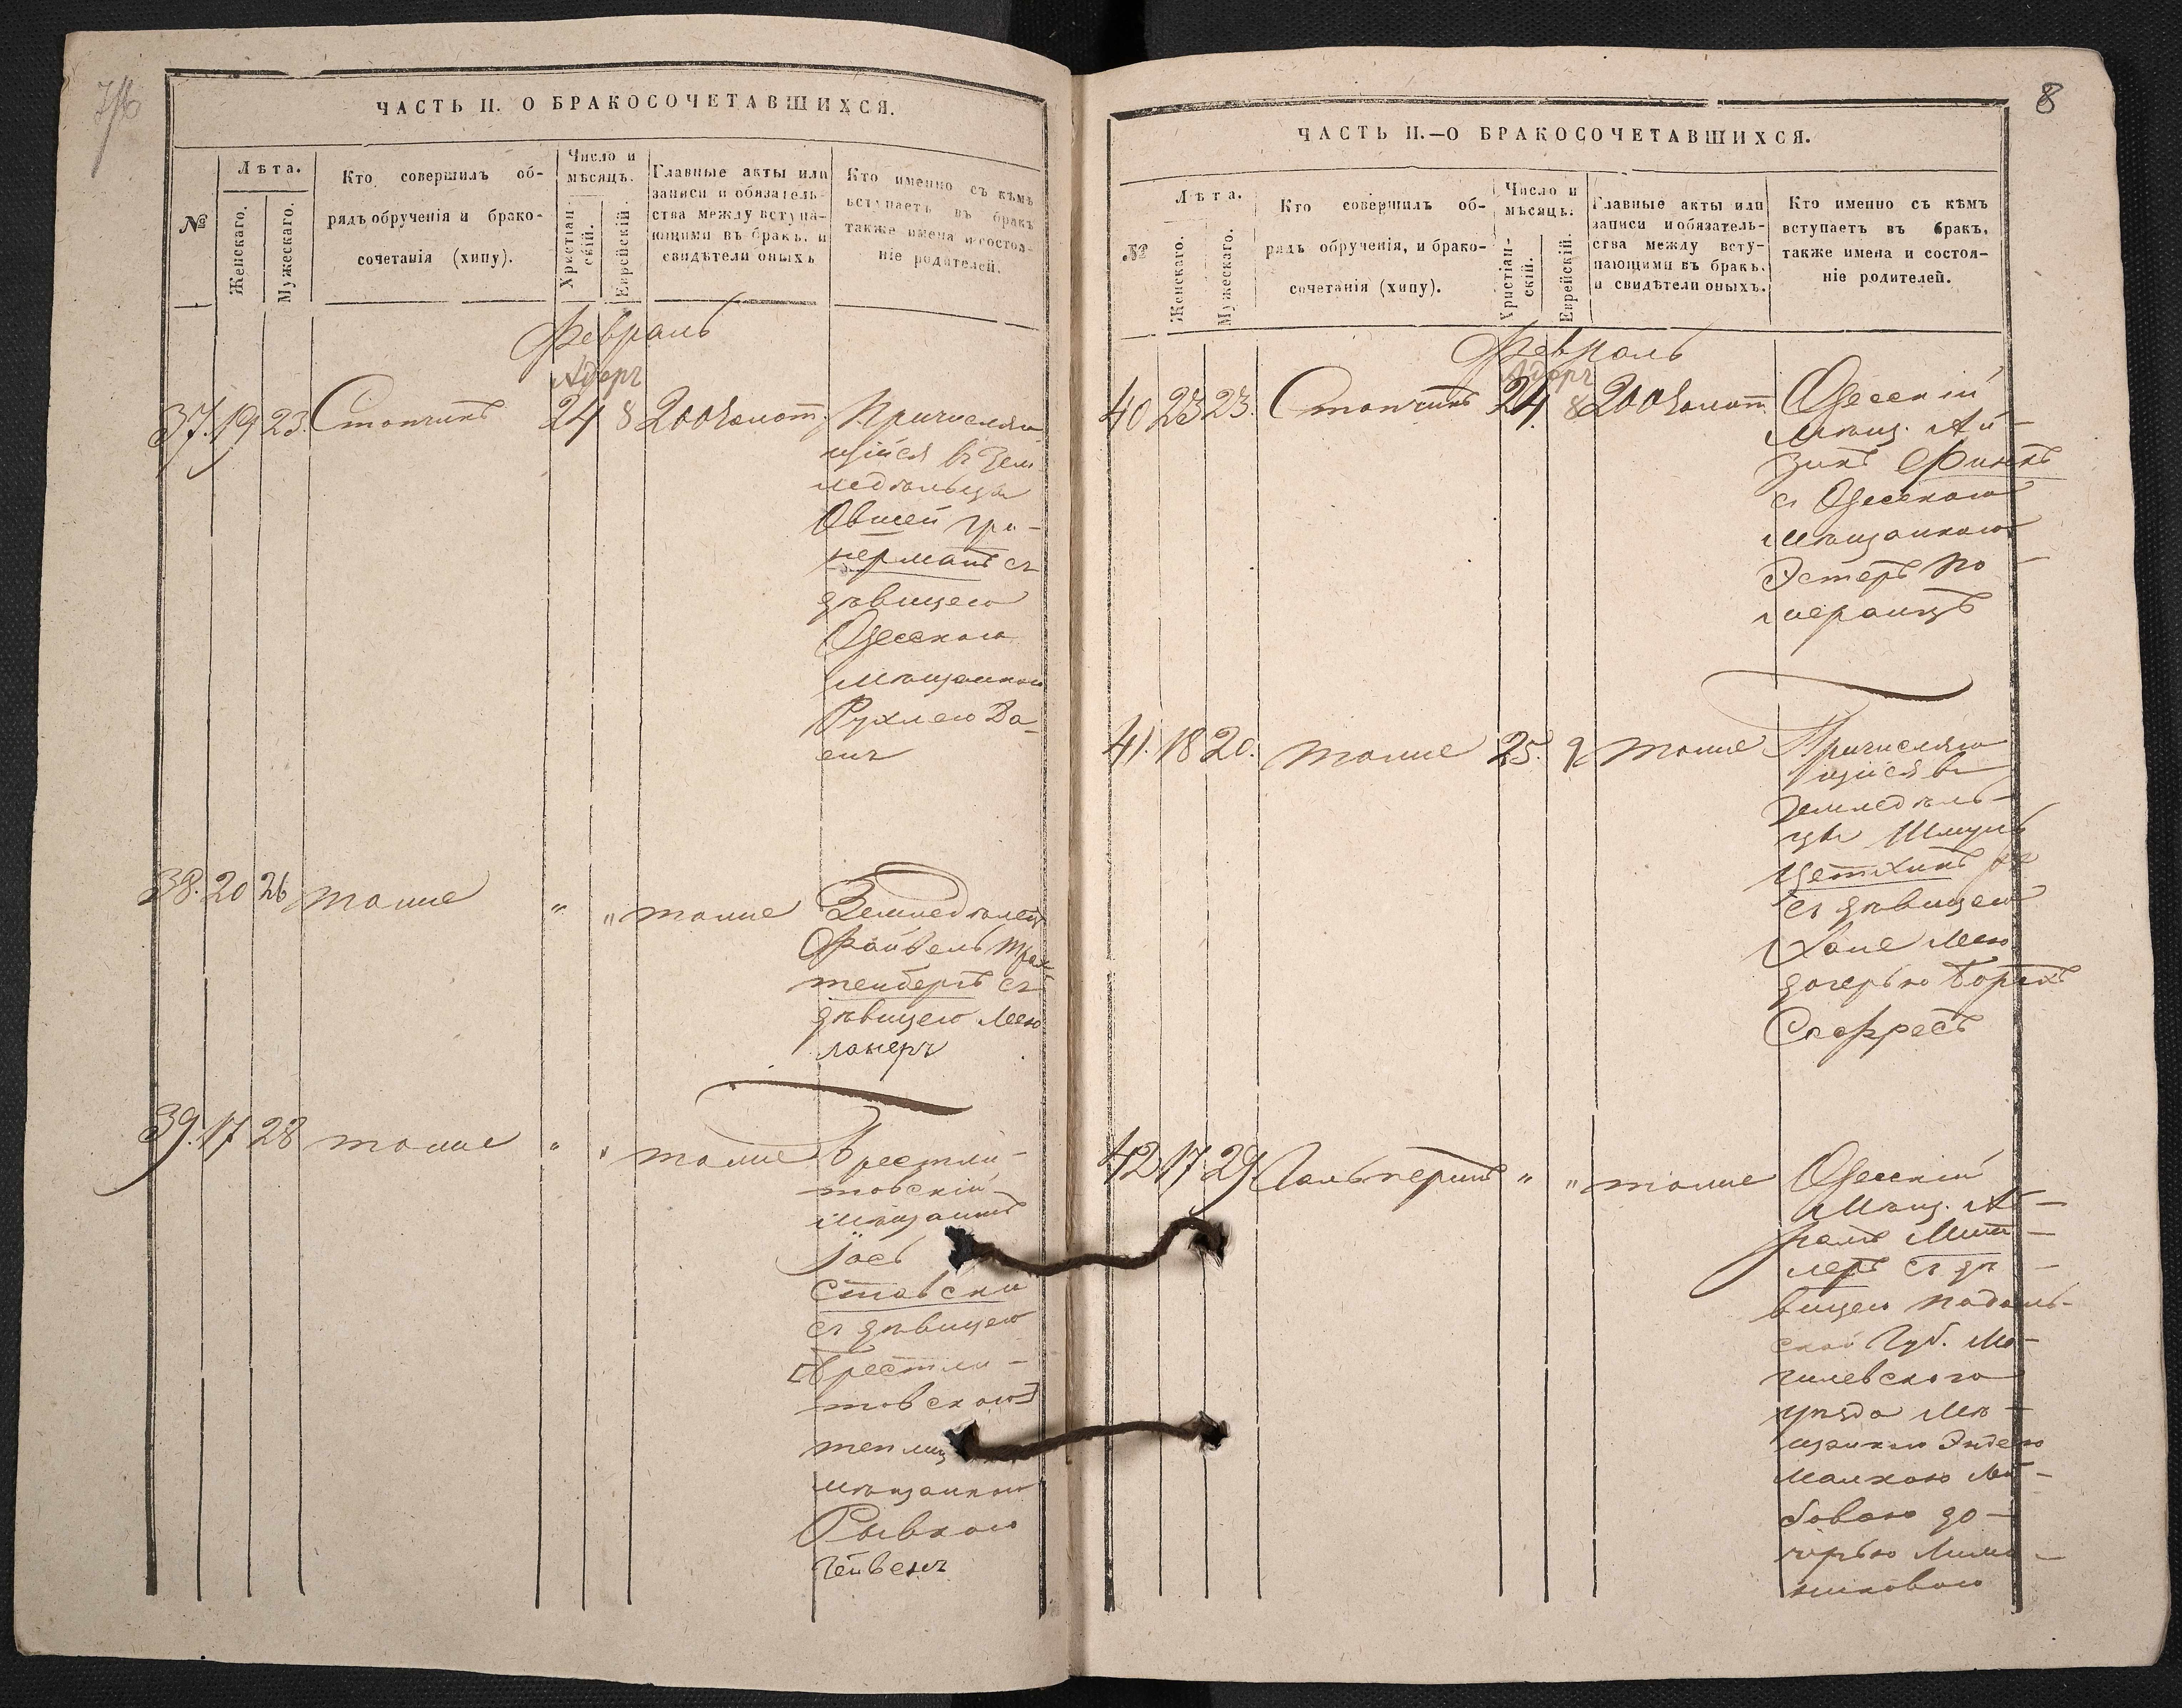 ЧАСТЬ II. О БРАКОСОЧЕТАВШИХСЯ.
№
Лѣта.
Женскаго.
Мужескаго.
Кто совершилъ об-
рядъ обрученія и брако-
сочетанія (хипу).
Число и
мѣсяцъ.
Христіан-
скій.
Еврейскій.
Главные акты или
записи и обязатель-
ства между вступа-
ющими въ бракъ, и
свидѣтели оныхъ
Кто именно съ кѣмъ
вступаетъ въ бракъ
также имена и состоя-
ніе родителей.
Февраль
Адаръ
37. 19 23. Столчикъ 24 8 200 Золот. Причисляю
щійся въ Зем
ледѣльцы
Овшей Гри-
нерманъ съ
дѣвицею
Одесскою
мѣщанкою
Рухлею Да-
енъ
38. 20 26 тоже " " тоже Земледѣлецъ
Файвель Трах
тенбергъ съ
дѣвицею Леею
Ланеръ
39. 17 28 тоже " " тоже Брестли-
товскій
мѣщанинъ
Іось
Ставски
съ дѣвицею
Брестли-
товскою
мѣщанкою
Рывкою
8
ЧАСТЬ II.—О БРАКОСОЧЕТАВШИХСЯ.
№
Лѣта.
Женскаго.
Мужескаго.
Кто совершилъ об-
рядъ обрученія, и брако-
сочетанія (хипу).
Число и
мѣсяцъ.
Христіан-
скій.
Еврейскій.
Главные акты или
записи и обязатель-
ства между всту-
пающими въ бракъ.
и свидѣтели оныхъ.
Кто именно съ кѣмъ
вступаетъ въ бракъ,
также имена и состоя-
ніе родителей.
Февраль
Адаръ
40 23 23. Столчикъ 24. 8 200 Золот. Одесскій
мѣщ. Ай-
зикъ Финкъ
съ Одесскою
мѣщанкою
Эстеръ По-
меранцъ
41. 18 20. тоже 25. 9 тоже Причисляю
щійся въ
Земледѣль-
цы Шмуль
съ дѣвицею
Хане Леею
дочерью Борухъ
42 17 29 Гальперинъ " " тоже Одесскій
Мѣщ. Аб-
рамъ Мит-
леръ съ дѣ-
вицею Подоль-
ской Губ. Мо-
гилевского
уѣзда Мѣ-
щанкою Эйдею
Малкою Лей-
бовою до-
черью